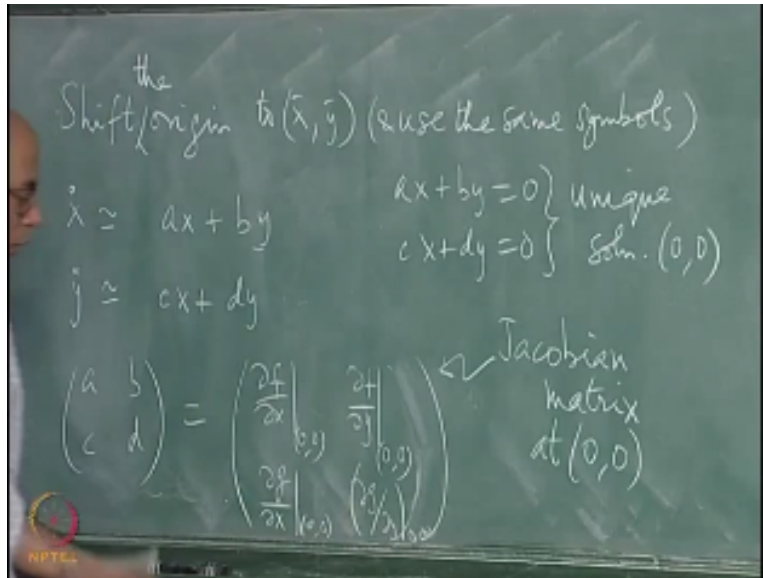 the
Shift/origin to (x̄, ȳ) (& use the same symbols)
ẋ ≃ ax + by
ẏ ≃ cx + dy
ax + by = 0 } unique
cx + dy = 0 } soln. (0,0)
(a b
c d) = (∂f/∂x|(0,0) ∂f/∂y|(0,0)
∂g/∂x|(0,0) (∂g/∂y)|(0,0))
Jacobian
matrix
at (0,0)
NPTEL